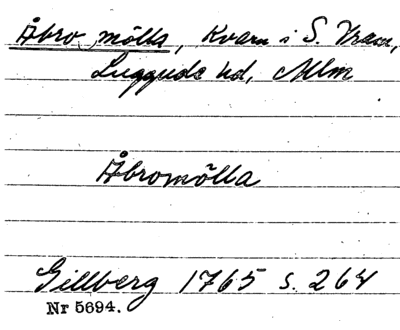 Åbro mölla, Kvarn i S. Vram,
Luggude hd, Mlm
Åbromölla
Gillberg 1765 s. 264
Nr 5694.